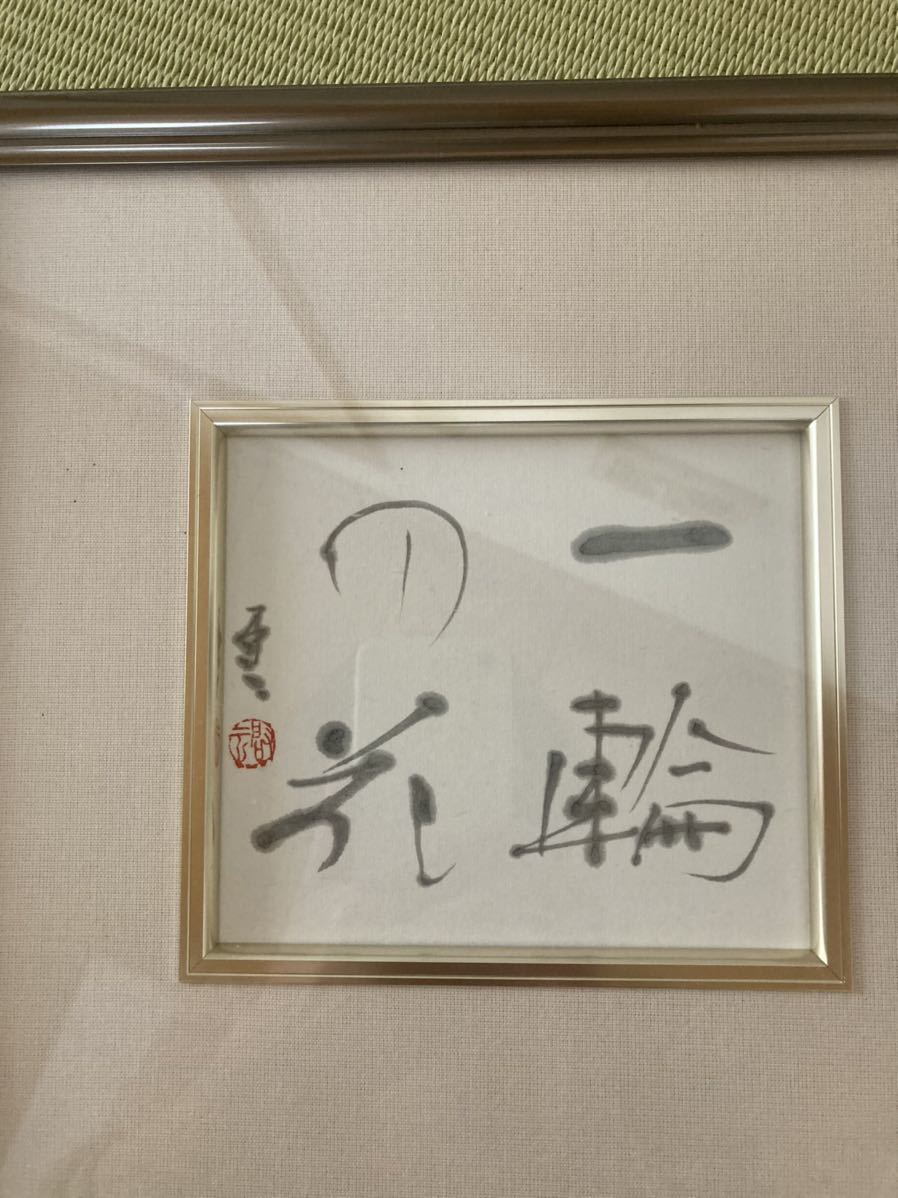 一輪
の花